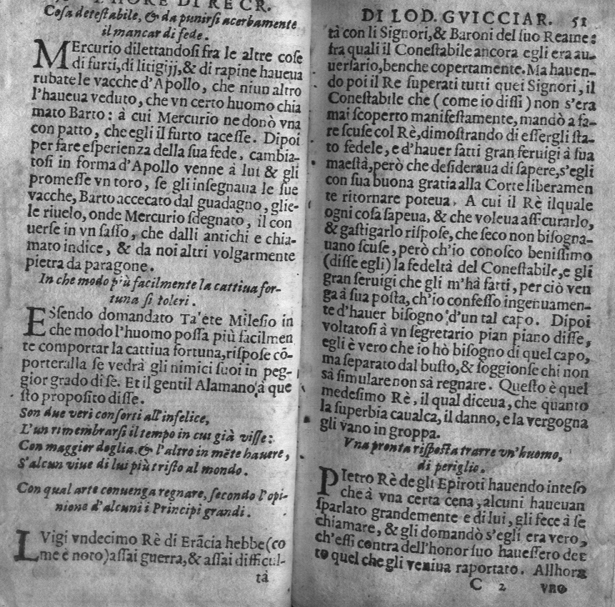 HORE DI RE CR.
Cosa detestabile, & da punirsi acerbamente
il mancar di fede.
MErcurio dilettandosi fra le altre cose
di furti, di litigij, & di rapine haueua
rubate le vacche d'Apollo, che niun altro
l'haueua veduto, che vn certo huomo chia
mato Barto: à cui Mercurio ne donò vna
con patto, che egli il furto tacesse. Dipoi
per fare esperienza della sua fede, cambia-
tosi in forma d'Apollo venne à lui & gli
promesse vn toro, se gli insegnaua le sue
vacche, Barto accecato dal guadagno, glie-
le riuelo, onde Mercurio sdegnato, il con
uerse in vn sasso, che dalli antichi e chia-
mato indice, & da noi altri volgarmente
pietra da paragone.
In che modo più facilmente la cattiua for-
tuna si toleri.
ESsendo domandato Ta'ete Milesio in
che modo l'huomo possa più facilmen
te comportar la cattiua fortuna, rispose cō-
porteralla se vedrà gli nimici suoi in peg-
gior grado di se. Et il gentil Alamano, à que
sto proposito disse.
Son due veri conforti all'infelice,
L'un rimembrarsi il tempo in cui già visse:
Con maggior doglia, & l'altro in mēte hauere,
S'alcun viue di lui più tristo al mondo.
Con qual arte conuenga regnare, secondo l'opi-
nione d'alcuni i Principi grandi.
LVigi vndecimo Rè di Frācia hebbe (co
me e noto) assai guerra, & assai difficul-
tà
DI LOD. GVICCIAR. 51
tà con li Signori, & Baroni del suo Reame:
fra quali il Conestabile ancora egli era au-
uersario, benche copertamente. Ma hauen-
do poi il Re superati tutti quei Signori, il
Conestabile che (come io dissi) non s'era
mai scoperto manifestamente, mandò a fa-
re scuse col Rè, dimostrando di essergli sta-
to fedele, e d'hauer fatti gran seruigi à sua
maestà, però che desideraua di sapere, s'egli
con sua buona gratia alla Corte liberamen
te ritornare poteua. A cui il Rè ilquale
ogni cosa sapeua, & che voleua assicurarlo,
& gastigarlo rispose, che seco non bisogna-
uano scuse, però ch'io conosco benissimo
(disse egli) la fedeltà del Conestabile, e gli
gran seruigi che gli m'hà fatti, per ciò ven
ga à sua posta, ch'io confesso ingenuamen-
te d'hauer bisogno d'un tal capo. Dipoi
voltatosi à vn segretario pian piano disse,
egli è vero che io hò bisogno di quel capo,
ma separato dal busto, & soggionse chi non
sà simulare non sà regnare. Questo è quel
medesimo Rè, il qual diceua, che quanto
la superbia caualca, il danno, e la vergogna
gli vano in groppa.
Vna pronta risposta trarre vn'huomo,
di periglio.
PIetro Rè de gli Epiroti hauendo inteso
che à vna certa cena, alcuni haueuan
sparlato grandemente e di lui, gli fece à se
chiamare, & gli domandò s'egli era vero,
ch'essi contra dell'honor suo hauessero det
to quel che gli veniua raportato. Allhora
C 2 vno